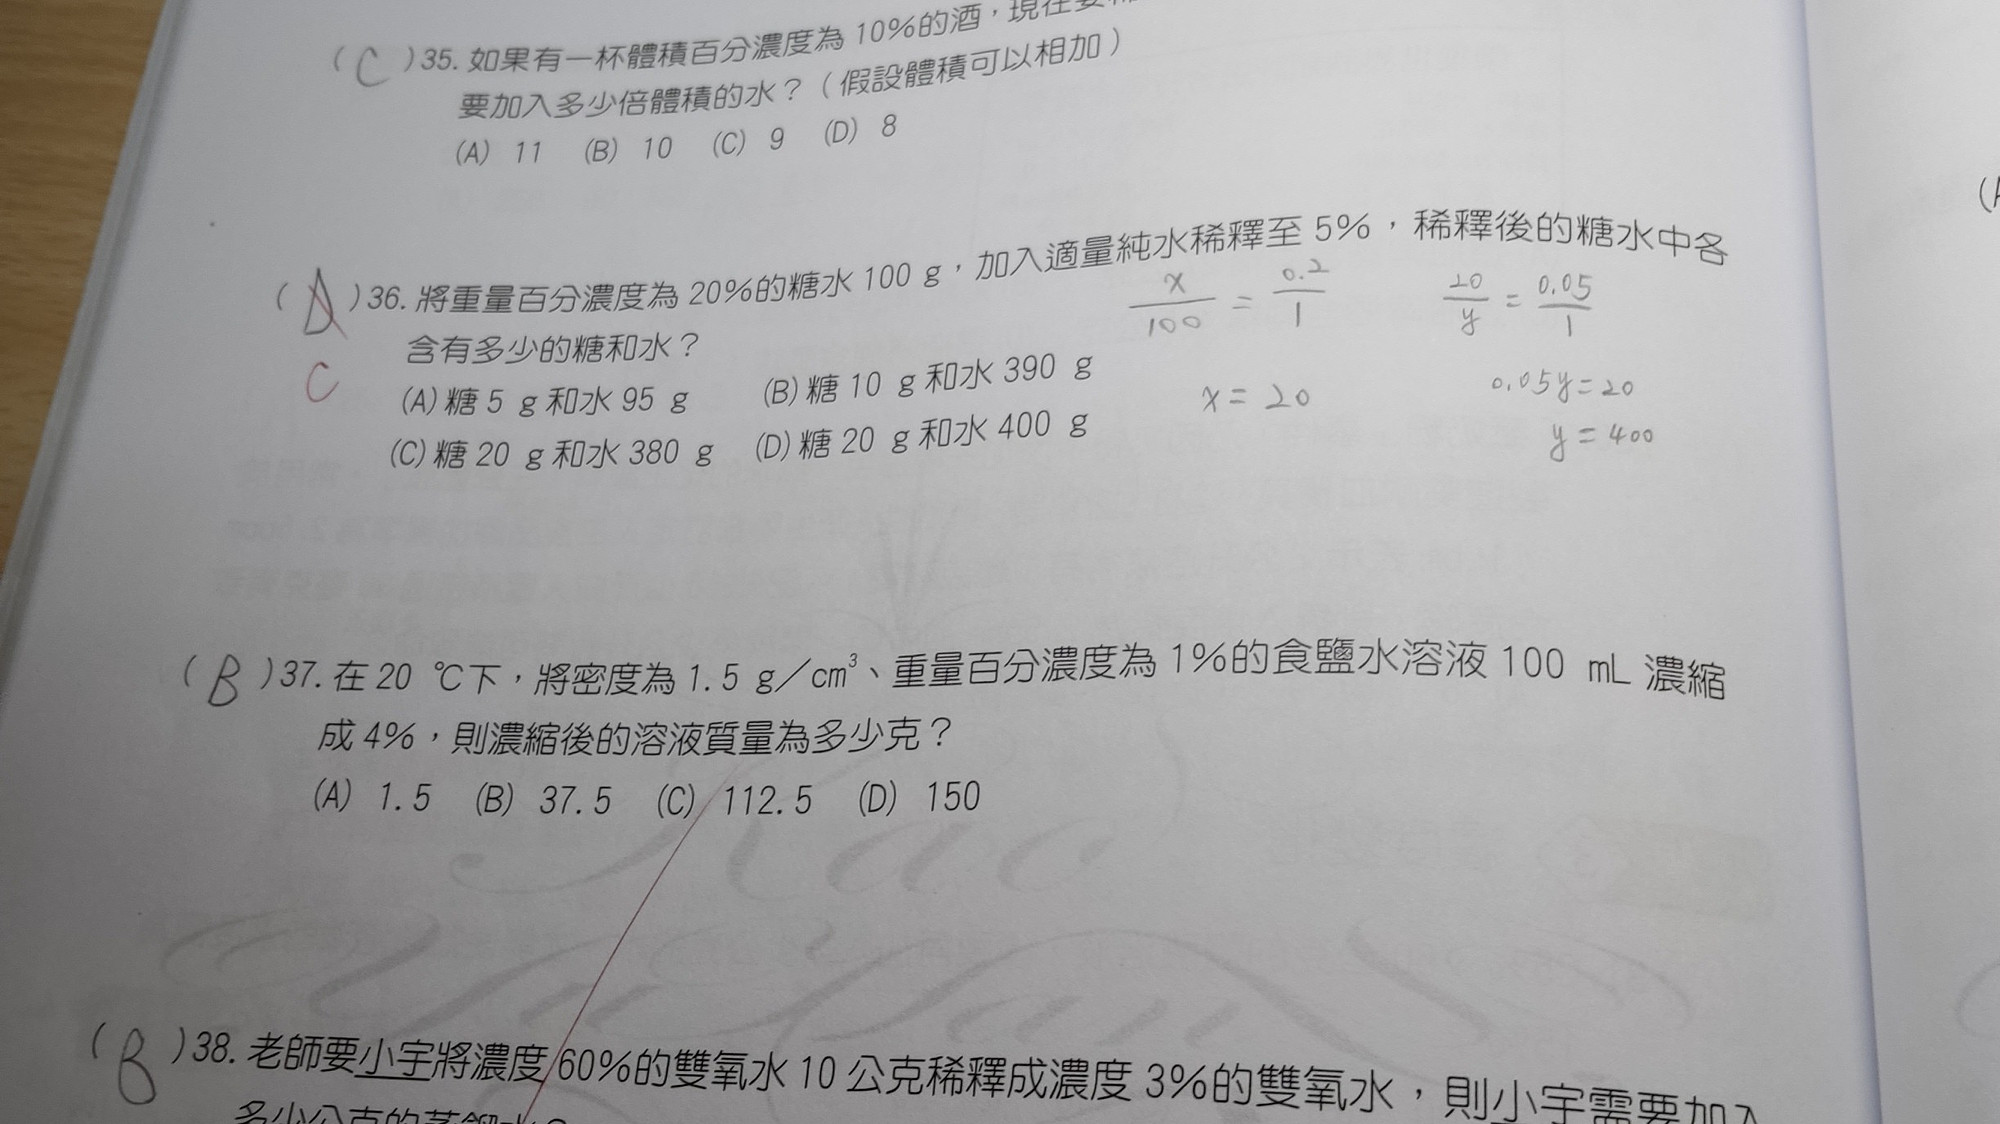 ( C )35. 如果有一杯體積百分濃度為 10%的酒，現在要稀
要加入多少倍體積的水？（假設體積可以相加）
(A) 11 (B) 10 (C) 9 (D) 8
( D )36. 將重量百分濃度為 20%的糖水 100 g，加入適量純水稀釋至 5%，稀釋後的糖水中各
C
含有多少的糖和水？
(A) 糖 5 g 和水 95 g (B) 糖 10 g 和水 390 g
(C) 糖 20 g 和水 380 g (D) 糖 20 g 和水 400 g
x/100 = 0.2/1
x = 20
20/y = 0.05/1
0.05y = 20
y = 400
( B )37. 在 20 ℃下，將密度為 1.5 g／cm³、重量百分濃度為 1%的食鹽水溶液 100 mL 濃縮
成 4%，則濃縮後的溶液質量為多少克？
(A) 1.5 (B) 37.5 (C) 112.5 (D) 150
( B )38. 老師要小宇將濃度 60%的雙氧水 10 公克稀釋成濃度 3%的雙氧水，則小宇需要加入
多少公克的蒸餾水？